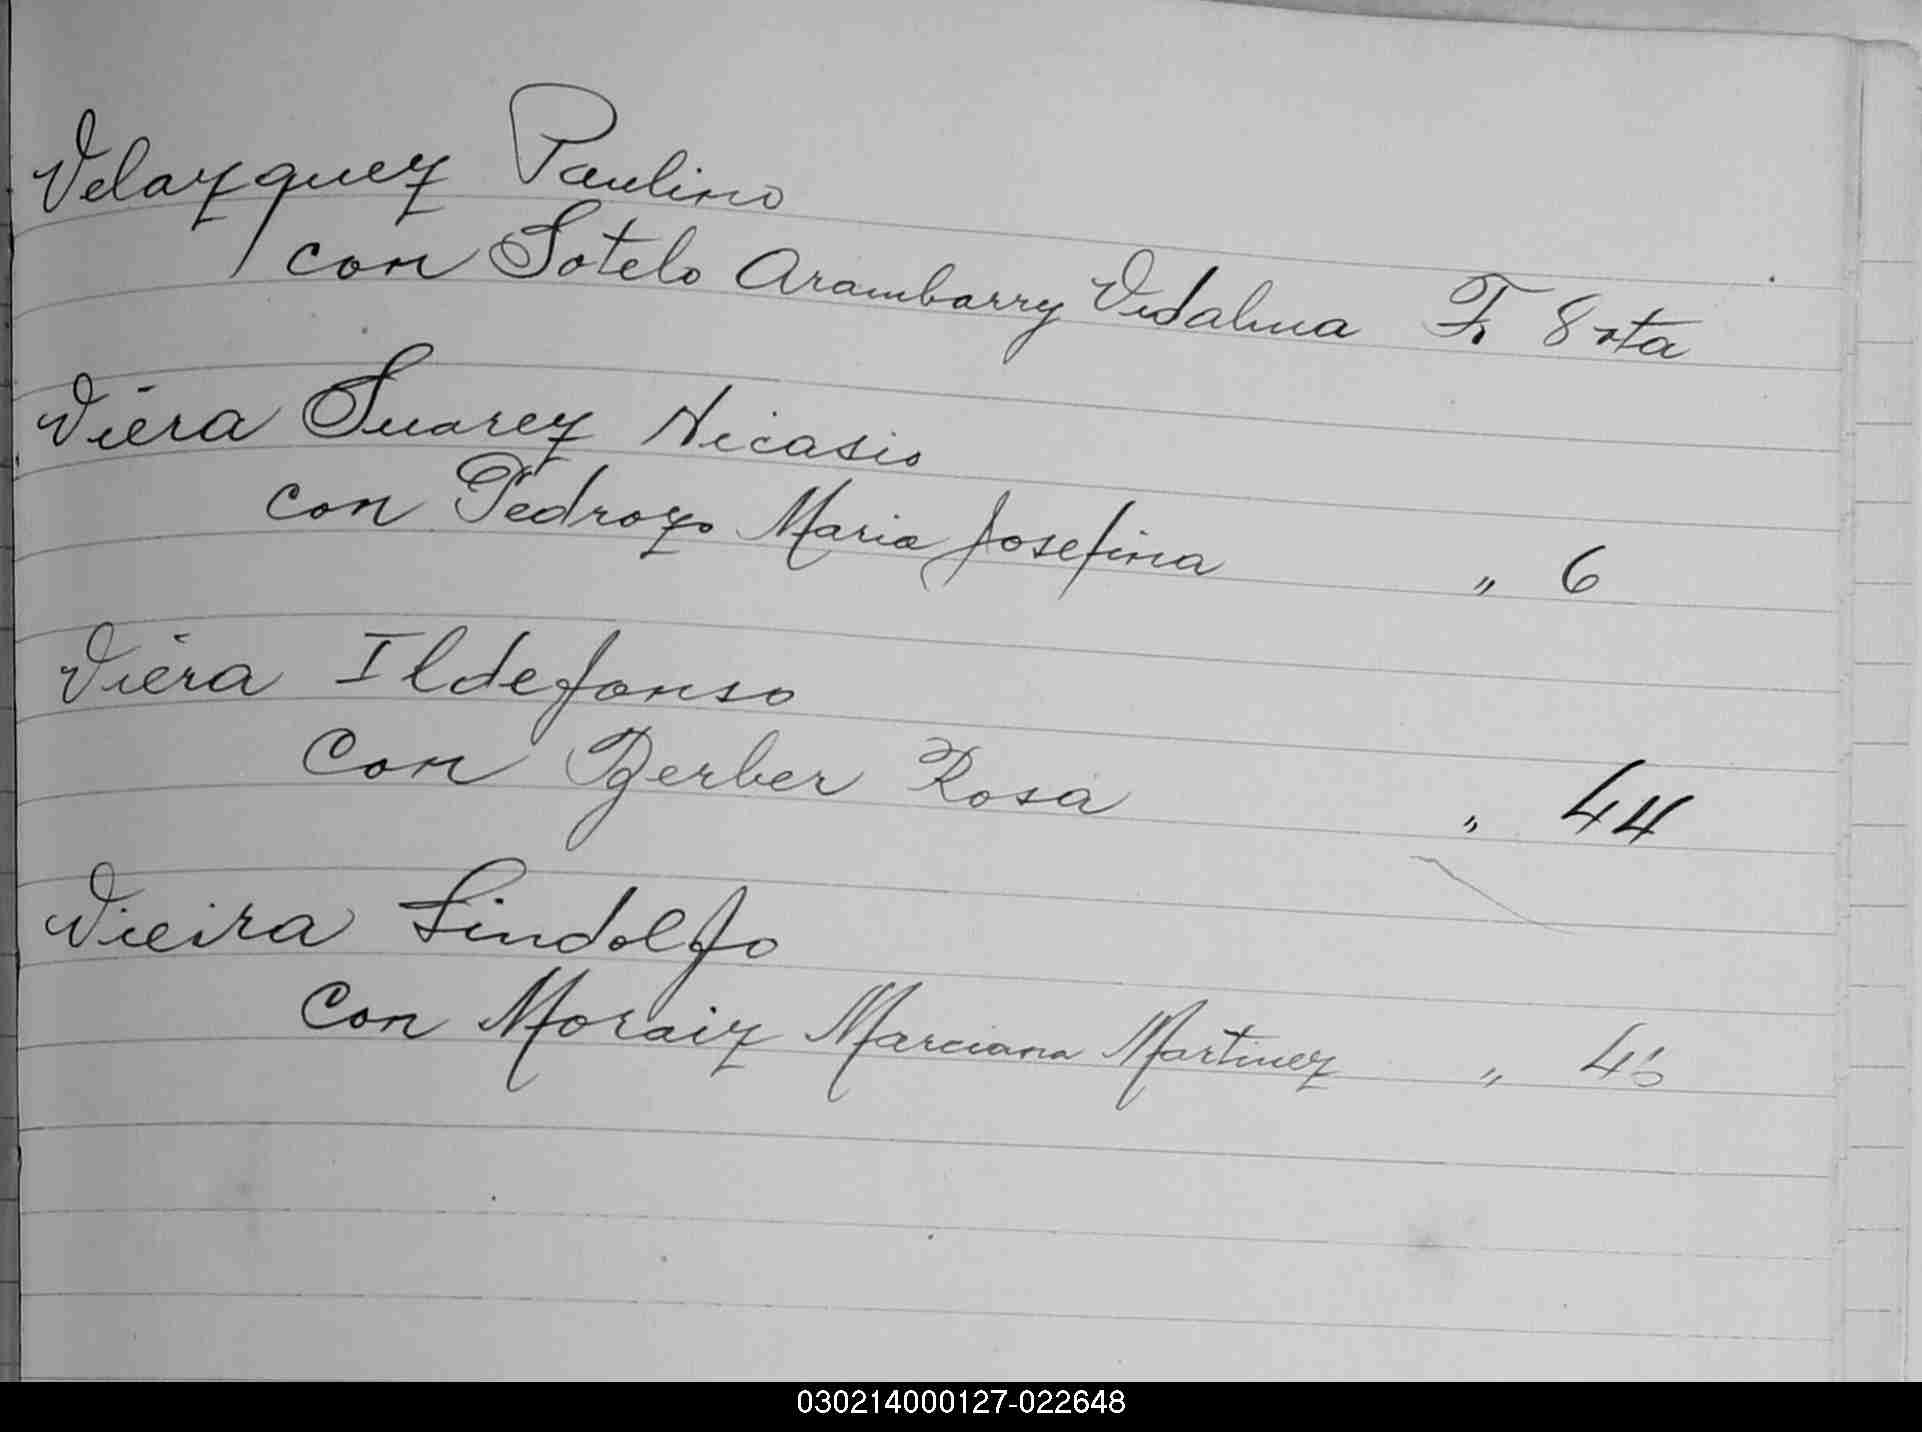 Velazquez Paulino
con Sotelo Arambarry Vidalma F. 8 vta
Viera Suarez Nicasio
con Pedrozo Maria Josefina " 6
Viera Ildefonso
Con Berber Rosa " 44
Vieira Lindolfo
Con Moraiz Marciana Martinez "
030214000127-022648